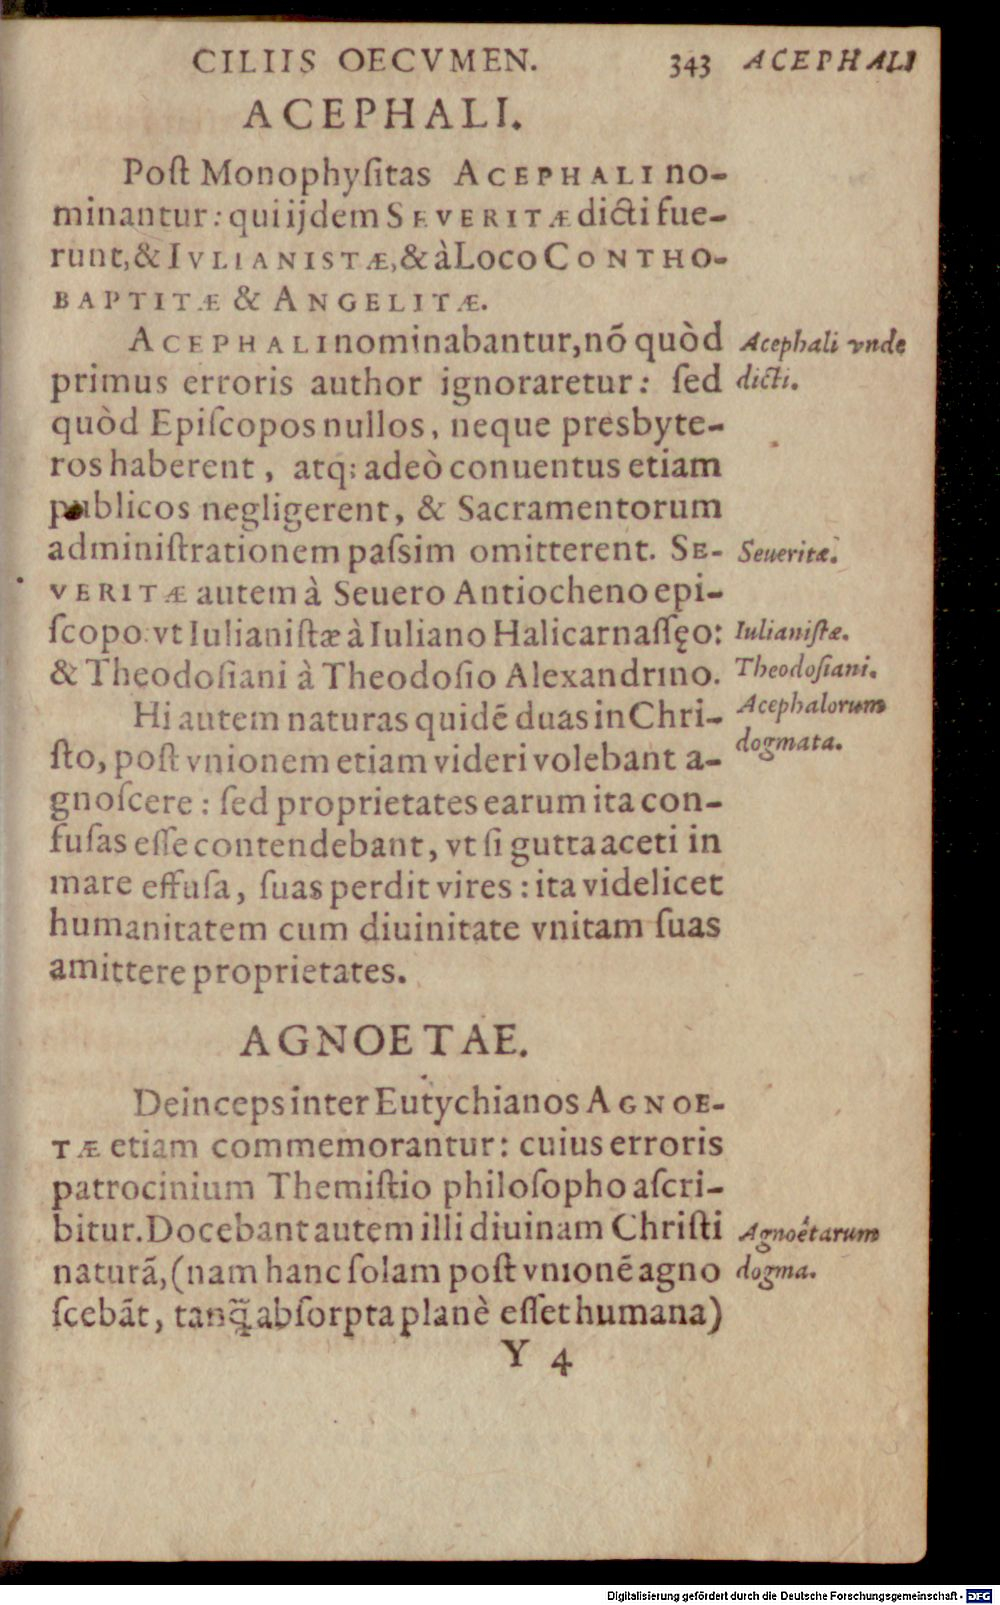 CILIIS OECVMEN. 343 ACEPHALI
ACEPHALI.
Poſt Monophyſitas ACEPHALI no-
minantur: qui ijdem SEVERITÆ dicti fue-
runt, & IVLIANISTÆ, & à Loco CONTHO-
BAPTITÆ & ANGELITÆ.
ACEPHALI nominabantur, nõ quòd
primus erroris author ignoraretur: ſed
quòd Epiſcopos nullos, neque presbyte-
ros haberent, atq; adeò conuentus etiam
publicos negligerent, & Sacramentorum
adminiſtrationem paſsim omitterent. SE-
VERITÆ autem à Seuero Antiocheno epi-
ſcopo: vt Iulianiſtæ à Iuliano Halicarnaſſęo:
& Theodoſiani à Theodoſio Alexandrino.
Hi autem naturas quidẽ duas in Chri-
ſto, poſt vnionem etiam videri volebant a-
gnoſcere: ſed proprietates earum ita con-
fuſas eſſe contendebant, vt ſi gutta aceti in
mare effuſa, ſuas perdit vires: ita videlicet
humanitatem cum diuinitate vnitam ſuas
amittere proprietates.
Acephali vnde
dicti.
Seueritæ.
Iulianiſtæ.
Theodoſiani.
Acephalorum
dogmata.
AGNOETAE.
Deinceps inter Eutychianos AGNOE-
TÆ etiam commemorantur: cuius erroris
patrocinium Themiſtio philoſopho aſcri-
bitur. Docebant autem illi diuinam Chriſti
naturã, (nam hanc ſolam poſt vnionẽ agno
ſcebãt, tanq̃ abſorpta planè eſſet humana)
Agnoëtarum
dogma.
Y 4
Digitalisierung gefördert durch die Deutsche Forschungsgemeinschaft - DFG